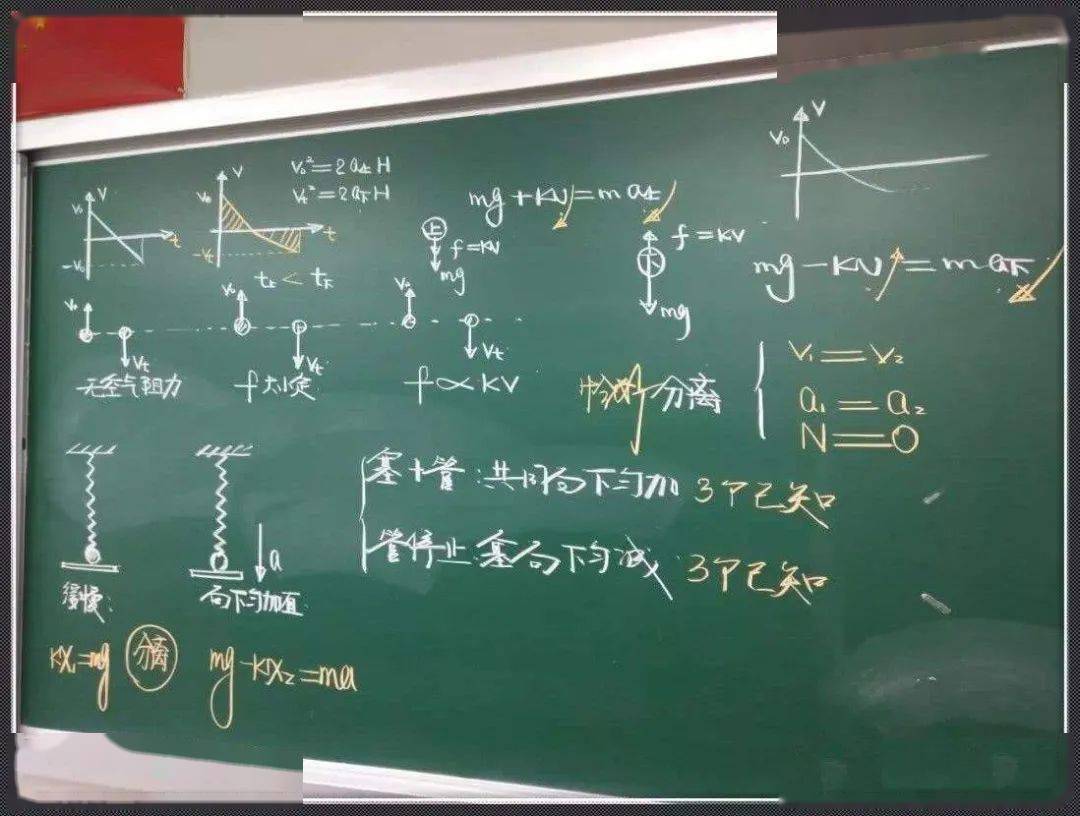 V
V₀
t
-V₀
V
V₀
t
-Vₜ
V₀²=2a上H
Vₜ²=2a下H
t上<t下
mg+KV=ma上
上
f=KV
mg
f=KV
下
mg
V
V₀
mg-KV=ma下
V₀
Vₜ
无空气阻力
V₀
Vₜ
f大小定
V₀
Vₜ
f∝KV
恰好分离
V₁=V₂
a₁=a₂
N=0
塞+管:共同向下匀加 3个已知
管停止:塞向下匀减 3个已知
缓慢:
a
向下匀加直
KX₁=mg
分离
mg-KX₂=ma